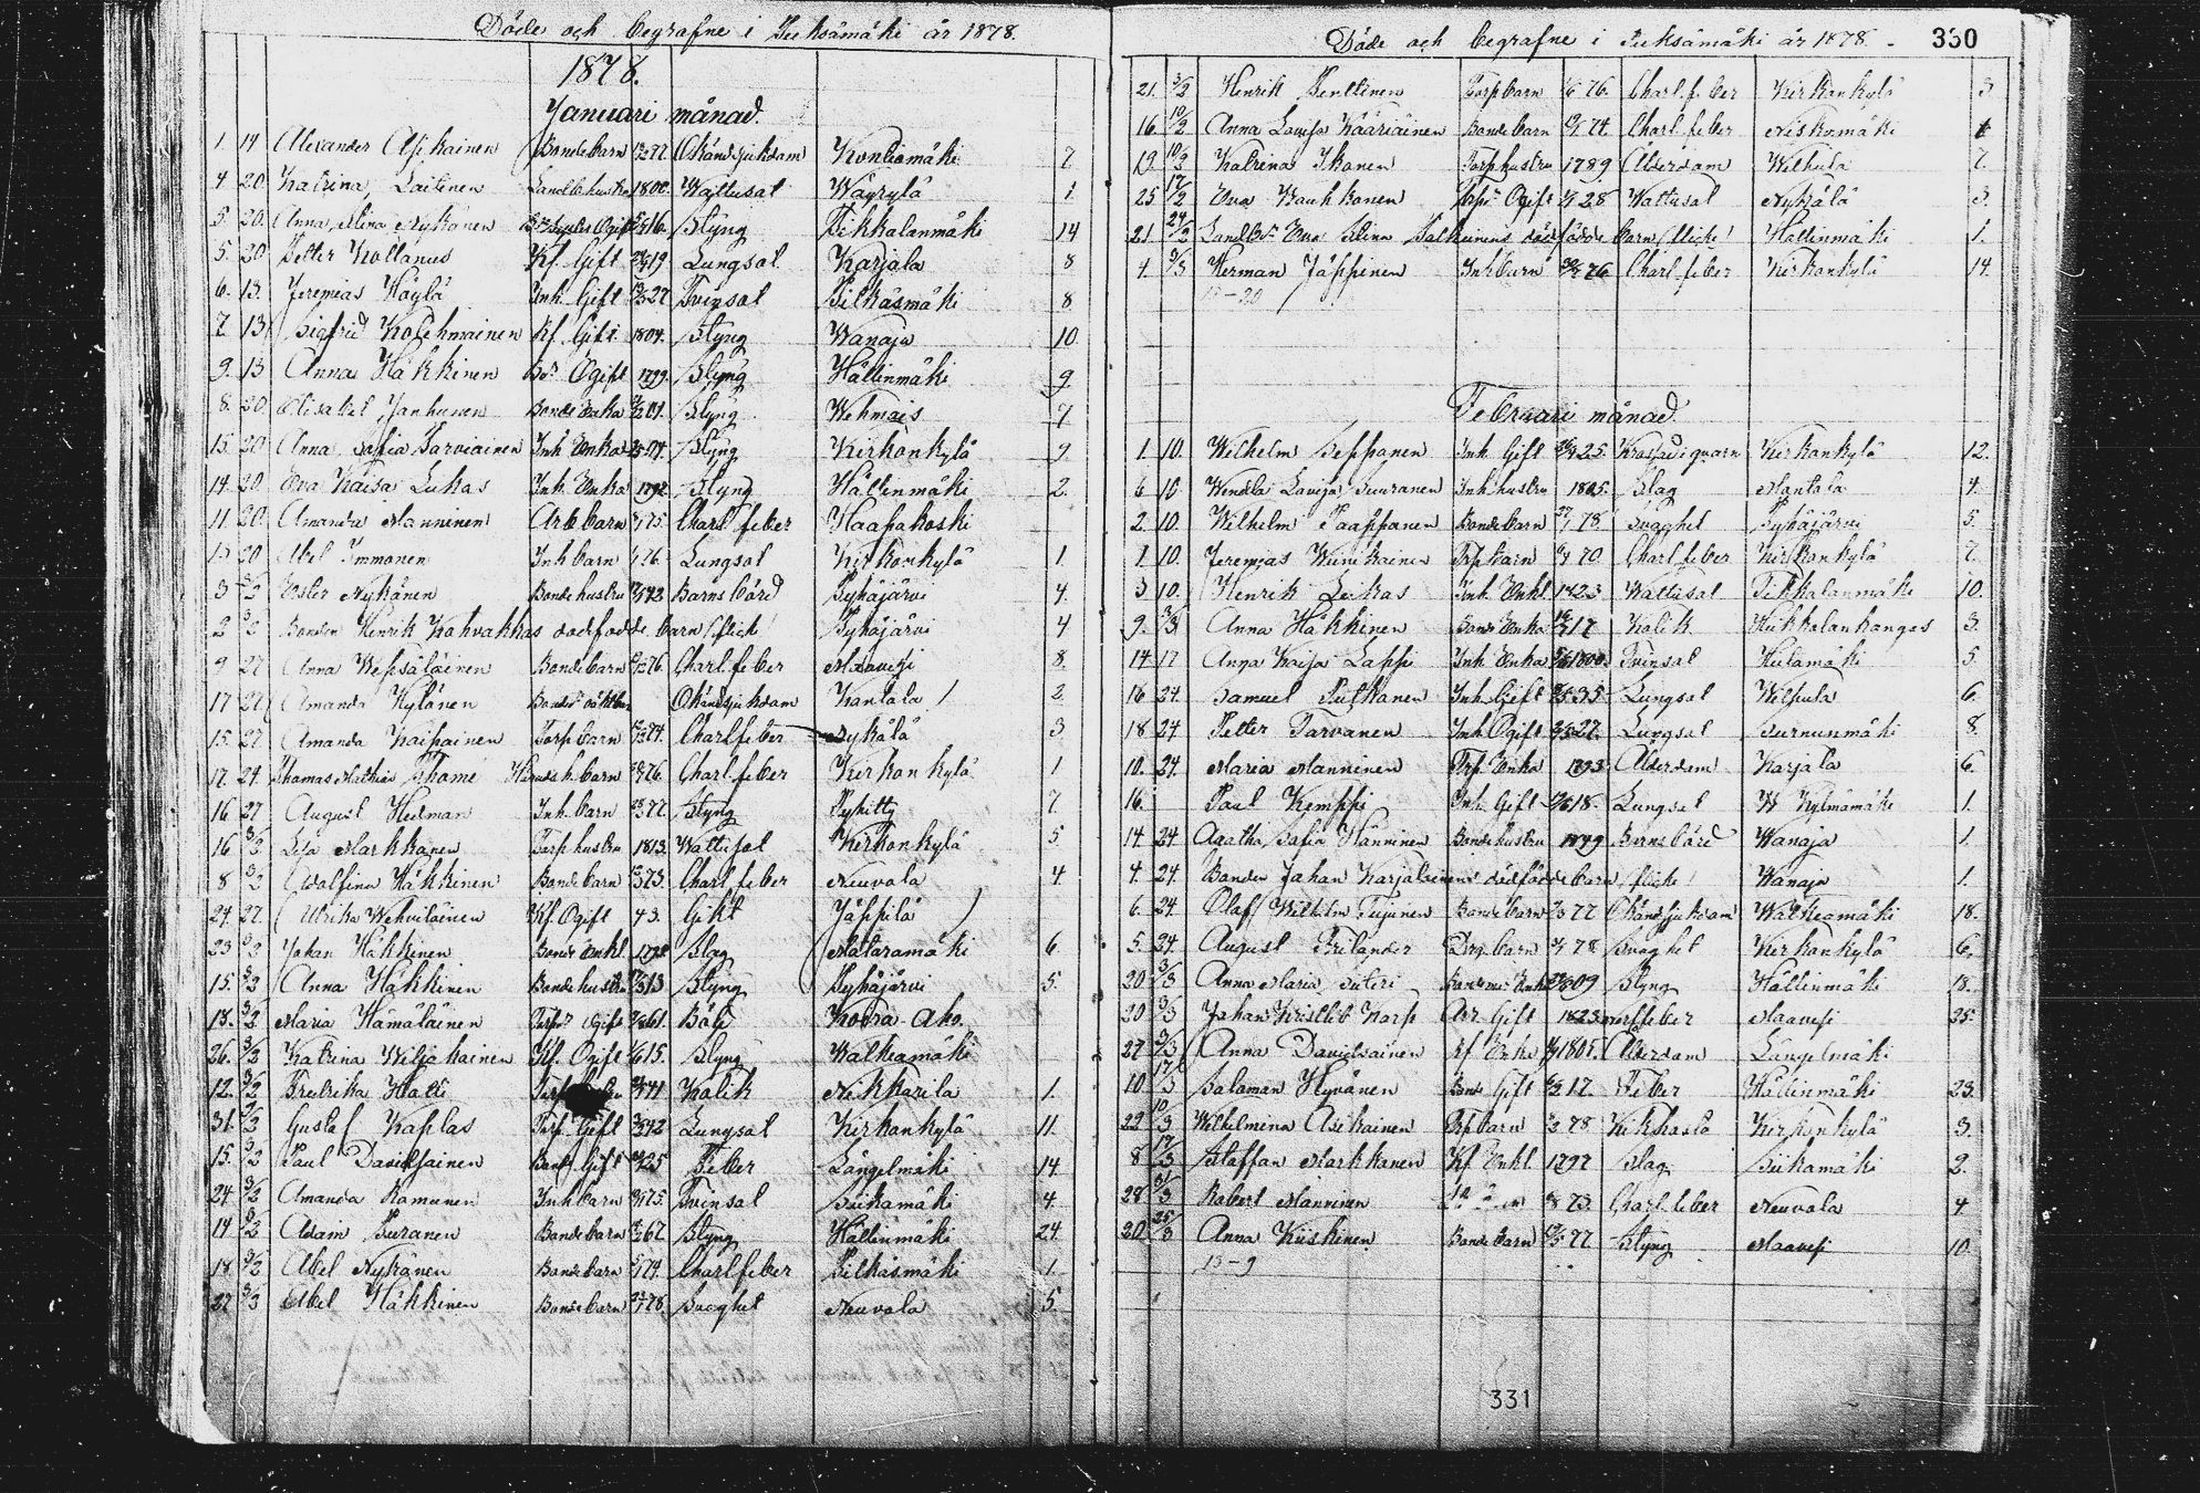 Döde och begrafne i Pieksämäki år 1878.
1878.
Januari månad.
1. 14 Alexander Asikainen Bondebarn 77 Okänd sjukdom Kontiomäki 7
4. 20. Katrina Laitinen hustru 1800. Wattusot Wäyrylä 1
5. 20. Anna Stina Nykänen Ogift 16. Styng Tikkalanmäki 14
5. 20 Petter Kollanus Kf. Gift 19 Lungsot Karjala 8
6. 13. Jeremias Häylä Inh. Gift 27 Tvinsot Pilkäsmäki 8
7. 13 Sigfrid Kolehmainen Kf. Gift 1804. Styng Wanaja 10
9. 13 Anna Häkkinen Ogift 1799. Styng Hällinmäki 9
8. 20. Elisabet Janhunen Bonde Enka 01. Styng Wehmais 7
15. 20 Anna Sofia Sarviainen Inh. Enka 04. Styng Kirkonkylä 9
14. 20 Eva Kaisa Lukas Inh. Enka 1792 Styng Hällinmäki 2.
11. 20 Amanda Manninen Arb. barn 75. Charl. feber Haapakoski
15 20 Abel Immonen Inh. barn 76. Lungsot Kirkonkylä 1.
3 3/2 Ester Nykänen Bonde hustru 42 Barnsbörd Pyhäjärvi 4.
2 3/2 Bonden Henrik Kahvakkas dödfödde barn (flick) Pyhäjärvi 4
9 27 Anna Wepsäläinen Bondebarn 76. Charl. feber Maavesi 8.
17 27 Amanda Kylänen Okänd sjukdom Kantala 2.
15. 27 Amanda Kaipainen Torp barn 74. Charl feber Nykälä 3
17. 24. Thomas Mathias Thomé barn 76. Charl. feber Kirkonkylä 1
16 27 August Hedman Inh. barn 77 Styng Pyhitty 7
16 3/2 Lisa Markkanen Torp hustru 1813. Wattusot Kirkonkylä 5
8 3/2 Adolfina Häkkinen Bondebarn 73. Charl. feber Neuvola 4
24. 27. Ulrika Wehviläinen Kf. Ogift 43. Gikt Jäppilä
23 3/2 Johan Häkkinen Bonde Enkl. Slag Mataramäki 6.
15. 3/2 Anna Häkkinen Bonde hustru 13 Styng Pyhäjärvi 5.
18. 3/2 Maria Hämäläinen Ogift 61. Böld Kodra-Aho.
26. 3/2 Katrina Wiljakainen Kf. Ogift 15. Styng Walkeamäki
12. 3/2 Fredrika Halti 41 Kolik Nikkarila 1.
31. 3/2 Gustaf Kaplas Torp. Gift 42 Lungsot Kirkonkylä 11.
15. 3/2 Paul Davidsainen Bonde Gift 25 Feber Längelmäki 14.
24 3/2 Amanda Ramunen Inh barn 75. Tvinsot Siikamäki 4.
14 3/2 Adam Suranen Bondebarn 67. Styng Hällinmäki 24.
18 3/2 Abel Nykänen Bondebarn 74. Charl feber Pilkäsmäki 1.
27 3/3 Abel Häkkinen Bondebarn 78. Svaghet Neuvola 5.
Döde och begrafne i Pieksämäki år 1878. 330
21. 3/2 Henrik Penttinen Torpbarn 76. Charl. feber Kirkonkylä 3
16. 10/2 Anna Lovisa Kääriäinen Bondebarn 74. Charl. feber Niskamäki
19. 10/2 Katrina Ikonen Torphustru 1789 Ålderdom Wilhula 7.
25 17/2 Eva Kauhkonen Ogift 28 Wattusot Nykälä 3.
21 24/2 Eva Stina dödfödde barn (flick) Hällinmäki 1.
4. 3/3 Herman Jäppinen Inh barn 76 Charl. feber Kirkonkylä 14.
Februari månad.
1. 10. Wilhelm Seppänen Inh. Gift 25. Kirkonkylä 12.
6 10 Wendla Lovisa Suuranen Inh. hustru 1805. Slag Nantola 4.
2. 10. Wilhelm Paappanen Bondebarn 78 Svaghet Pyhäjärvi 5.
1 10. Jeremias Wiinikainen Trp barn 70 Charl feber Kirkonkylä 7.
3 10. Henrik Leikas Inh. Enkl. 1823 Wattusot Tikkalanmäki 10.
9. 3/3 Anna Häkkinen Bonde Enka 17 Kolik Kukkolankangas 3.
14 17 Anna Kaisa Lappi Inh Enka 1800. Tvinsot Hulamäki 5.
16 24. Samuel Putkonen Inh. Gift 35 Lungsot Wilhula 6.
18 24 Petter Tarvanen Inh. Ogift 27. Lungsot Surnunmäki 8.
10. 24. Maria Manninen Trp. Enka 1793 Ålderdom Karjala 6.
16. Paul Kemppi Inh. Gift 18. Lungsot W Kylmämäki 1.
14 24 Agatha Sofia Hänninen Bonde hustru Barnsbörd Wanaja 1.
4. 24. Bonden Johan Karjalainens dödfödde barn (flick) Wanaja 1.
6. 24. Olaf Wilhelm Tujunen Bondebarn 77 Okänd sjukdom Walkeamäki 18.
5. 24. August Frilander barn 78 Svaghet Kirkonkylä 6.
20 3/3 Anna Maria Suteri Enka 09 Styng Hällinmäki 18.
20 3/3 Johan Kristlib Korp Gift 1823 feber Maavesi 25.
27 3/3 Anna Davidsainen Kf Enka 1801. Ålderdom Längelmäki
10 17/3 Salaman Hyvönen Bonde Gift 17. Feber Hällinmäki 23.
22 10/3 Wilhelmina Asikainen Trp barn 78 Kikhosta Kirkonkylä 3.
8 17/3 Staffan Markkanen Kf Enkl. 1797 Slag Siikamäki 2.
28 31/3 Robert Manninen 73. Charl. feber Neuvola 4
20 25/3 Anna Kiiskinen Bondebarn 77 Styng Maavesi 10.
13-9
331